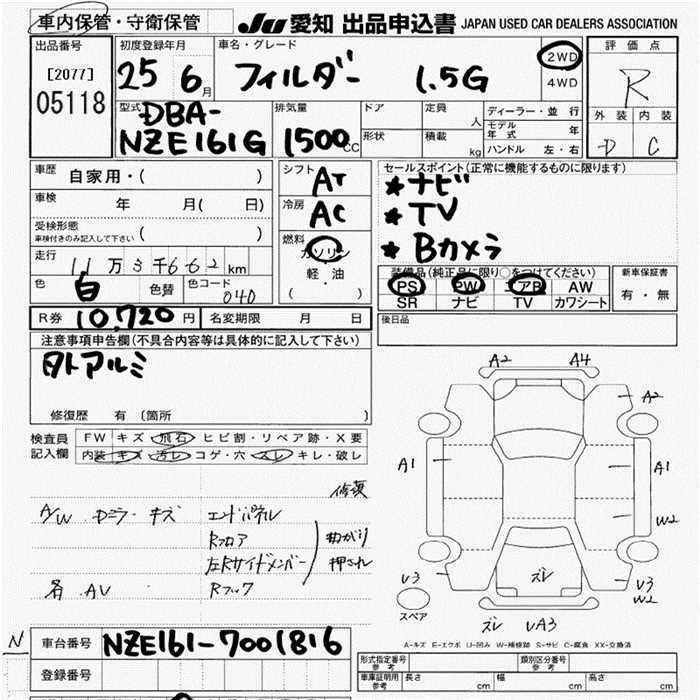 車内保管・守衛保管
JU 愛知 出品申込書 JAPAN USED CAR DEALERS ASSOCIATION
出品番号
[2077]
05118
初度登録年月
25 6月
車名・グレード
フィルダー 1.5G
2WD
4WD
評価点
R
外装 内装
D C
型式
DBA-
NZE161G
排気量
1500cc
ドア
形状
定員
人
積載
kg
ディーラー・並行
モデル年式 年
ハンドル 左・右
車歴
自家用・( )
車検
年 月( 日)
受検形態
車検付きのみ記入して下さい ( )
走行
11万3千662km
色
白
色替
色コード
040
シフト
AT
冷房
AC
燃料
ガソリン
軽・油
( )
セールスポイント(正常に機能するものに限ります)
★ナビ
★TV
★Bカメラ
装備品(純正品に限り○をつけてください)
PS PW エアB AW
SR ナビ TV カワシート
新車保証書
有・無
後日品
R券 10,720円
名変期限 月 日
注意事項申告欄(不具合内容等は具体的に記入して下さい)
社外アルミ
修復歴 有 (箇所
検査員
記入欄
FW キズ・飛石・ヒビ割・リペア跡・X要
内装 キズ・汚レ・コゲ・穴・スレ・キレ・破レ
修復
A/W Dミラー キズ
エンドパネル
Rフロア
左Rサイドメンバー
Rフック
曲がり
押され
各 AV
A2 A4
A2
A1
A1
W2
V3
ズレ
V3
W2
スペア
ズレ VA3
A-キズ E-エクボ U-凹み W-補修跡 S-サビ C-腐食 XX-交換済
N
車台番号
NZE161-7001816
登録番号
形式指定番号
参考
類別区分番号
参考
車庫証明用
参考
長さ cm
幅 cm
高さ cm